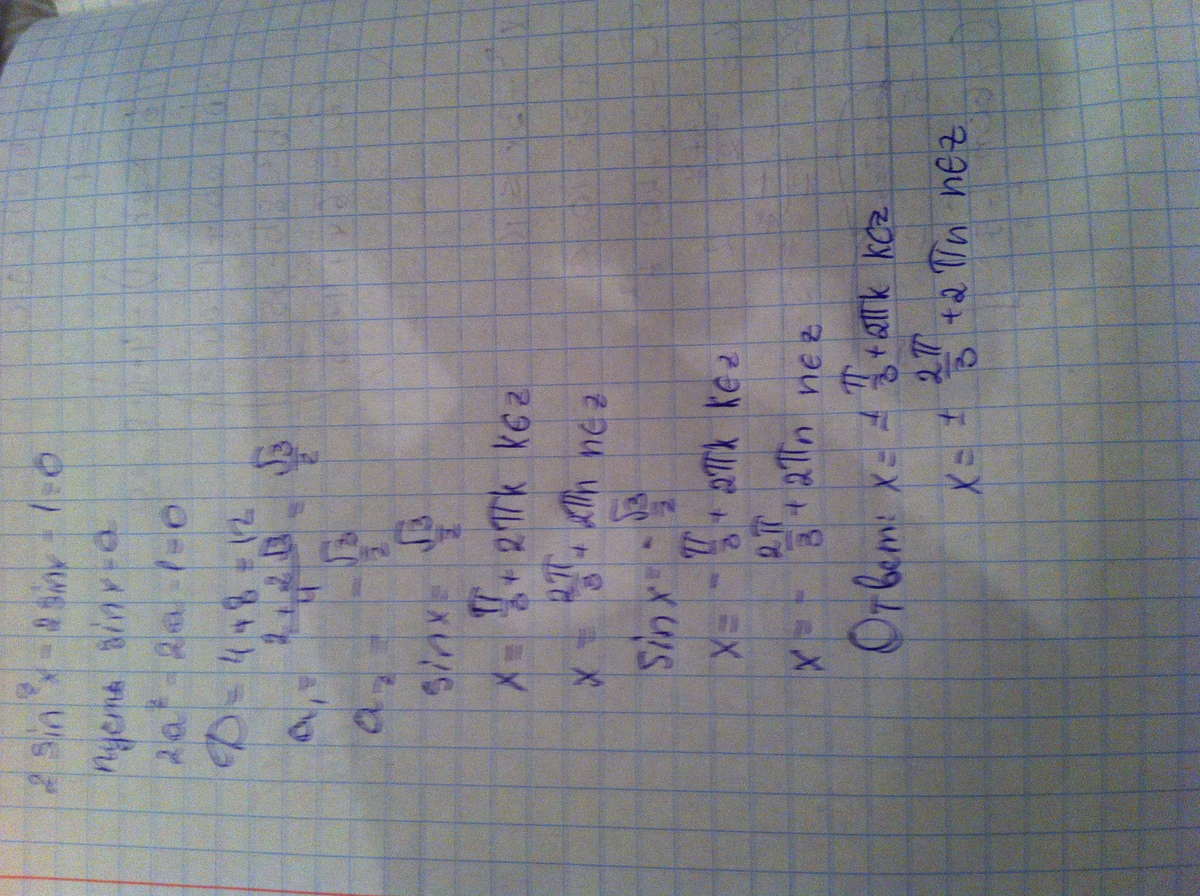 2 sin²x - 2 sin x - 1 = 0
пусть sin x = a
2a² - 2a - 1 = 0
D = 4+8 = 12
a₁ = (2+2√3)/4 = √3/2
a₂ = -√3/2
sin x = √3/2
x = π/3 + 2πk k∈z
x = 2π/3 + 2πn n∈z
sin x = -√3/2
x = - π/3 + 2πk k∈z
x = - 2π/3 + 2πn n∈z
Ответ: x = ± π/3 + 2πk k∈z
x = ± 2π/3 + 2πn n∈z